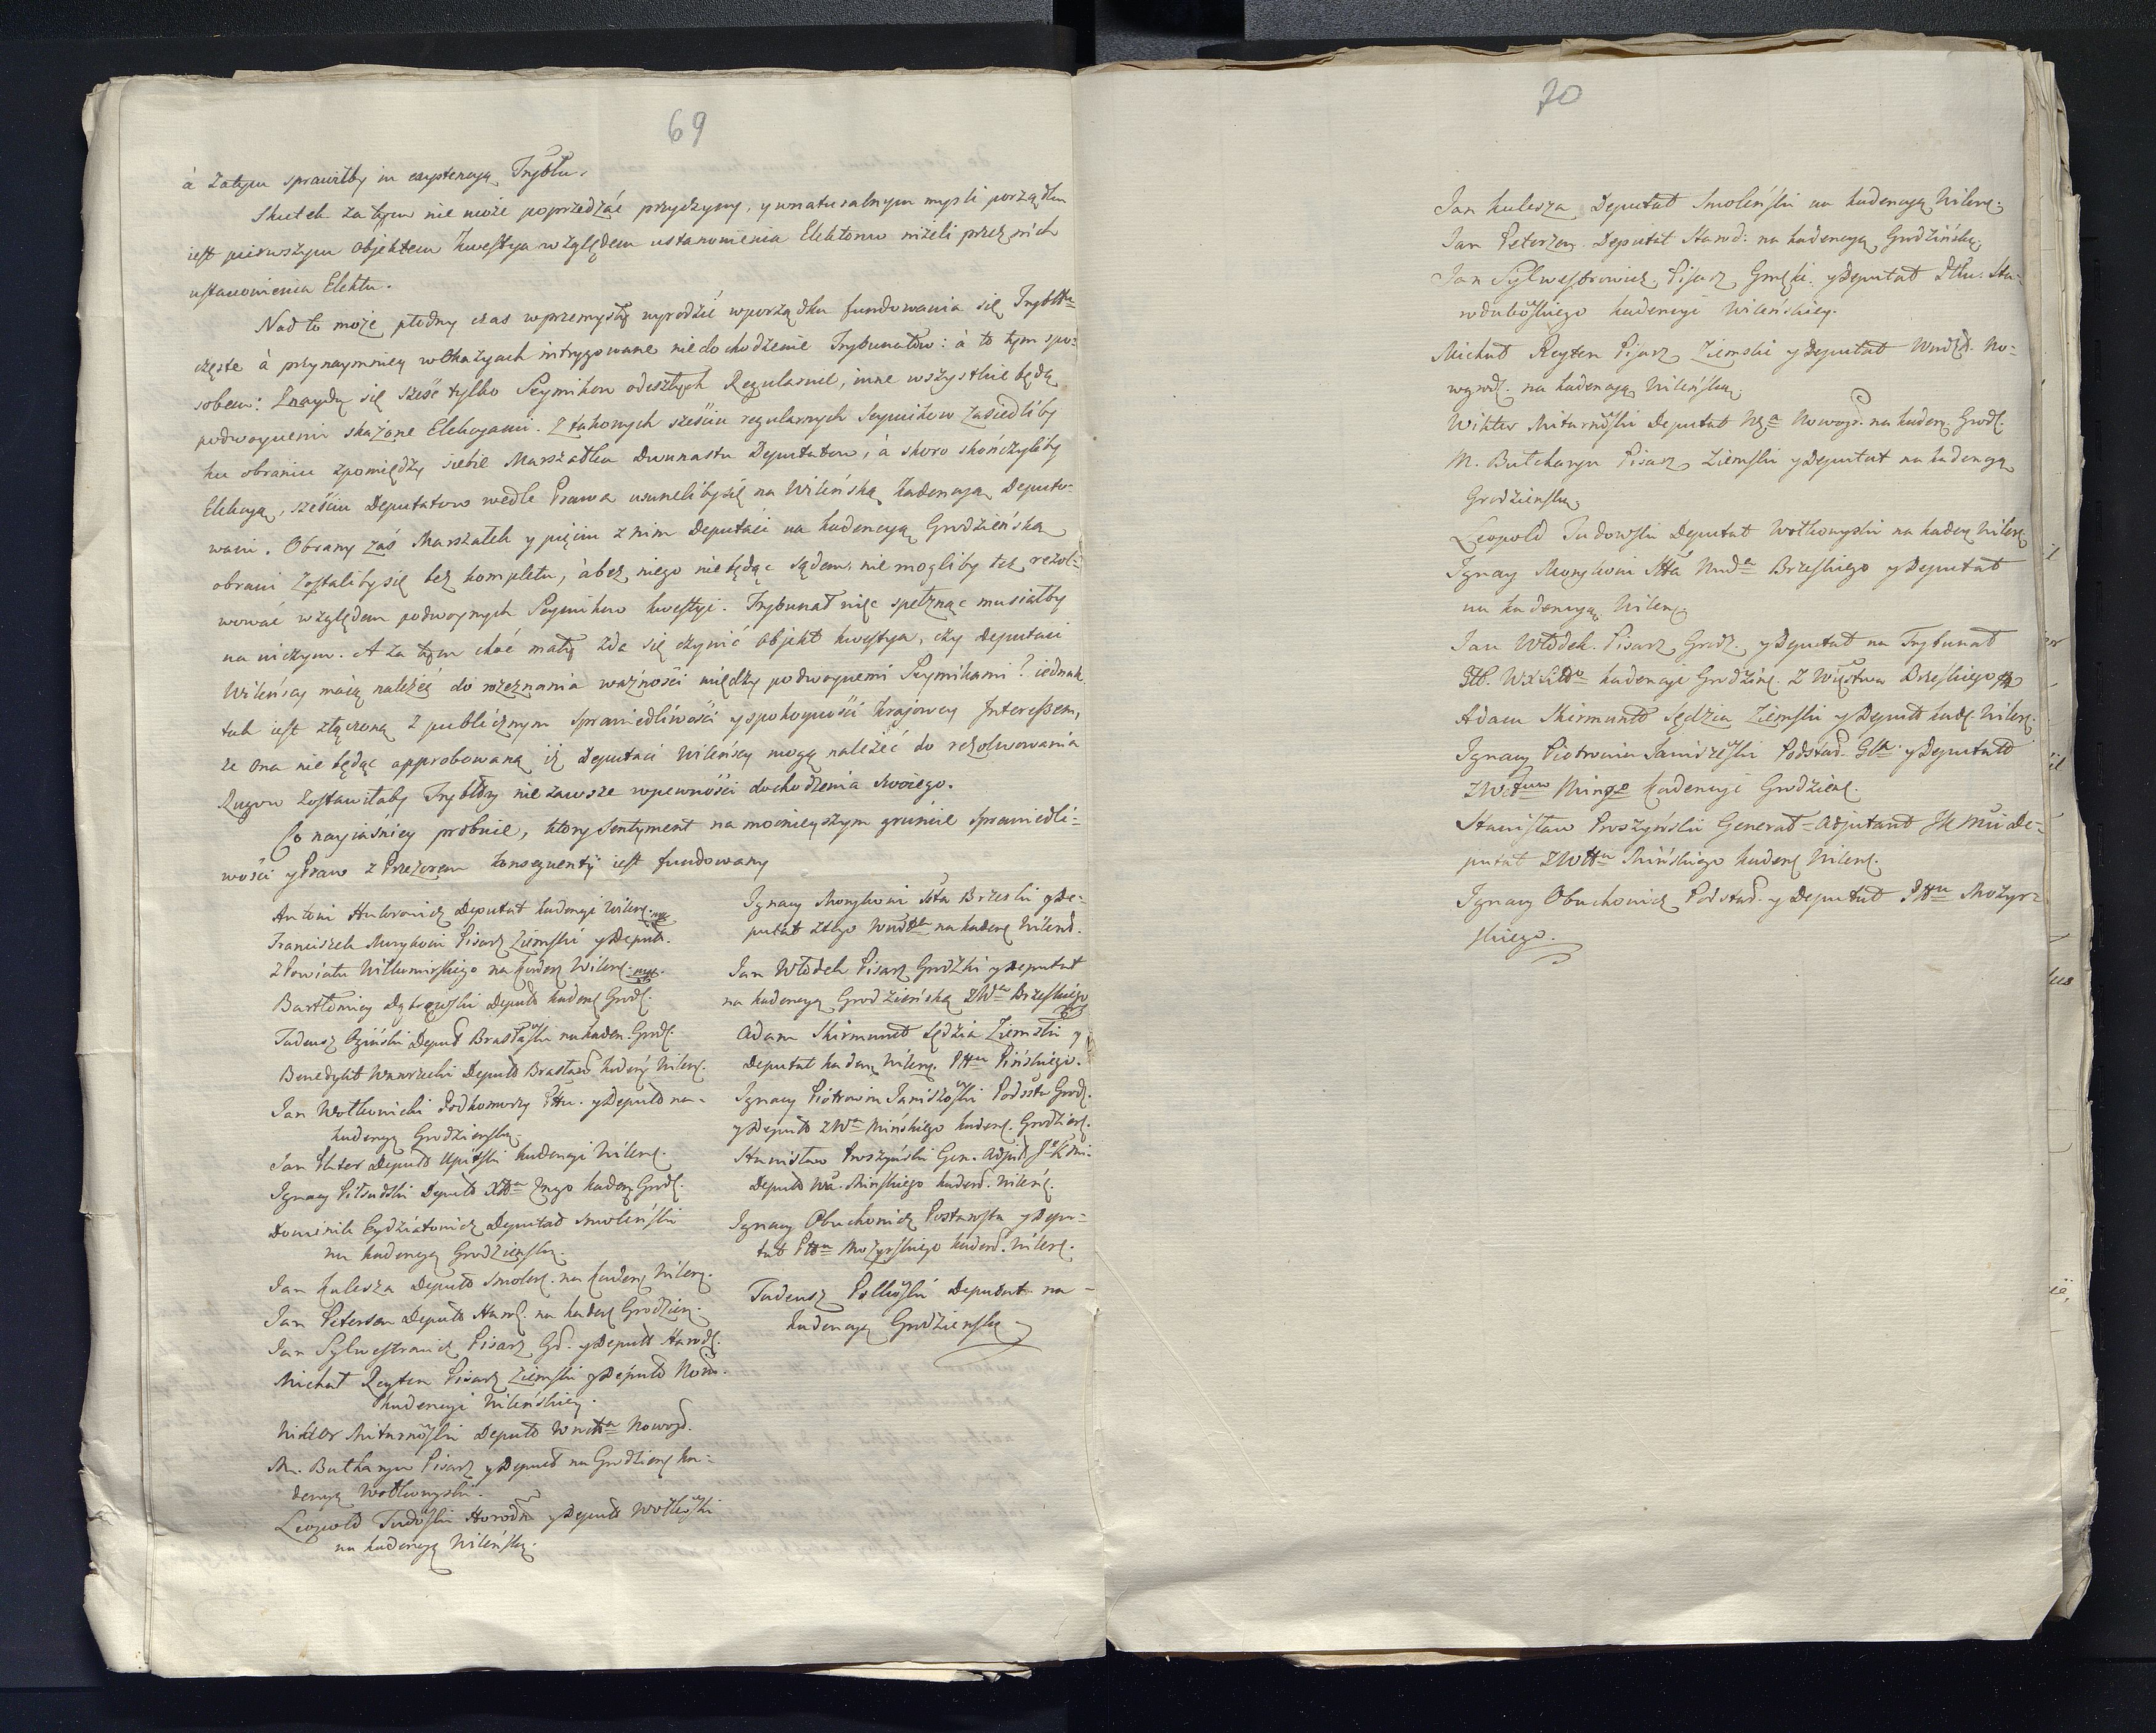 69
à zatym sprawiłby in exystencyą Trybłu.
Skutek za tym nie może poprzedzać przyczyny, y w naturalnym myśli porządku
iest pierwszym objektem kwestya względem ustanowienia Elektorow niżeli przez nich
ustanowienia Elektu.
Nad to może płodny czas w przemysły wyrodzić w porządku fundowania się Trybłłu
częste à przynaymniey w okazyach intrygowane niedochodzenie Trybunałow: à to tym spo=
sobem: Znaydą się sześć tylko Seymikow odeszłych Regularnie, inne wszystkie będą
podwoynemi skażone Elekcyami. Z takowych sześciu regularnych Seymikow zasiedliby
ku obraniu zpomiędzy siebie Marszałka Dwunastu Deputatow, à skoro skończyliby
Elekcyą, sześciu Deputatow wedle Prawa usuneliby się na Wileńską kadencyą Deputo=
wani. Obrany zaś Marszałek y pięciu z nim Deputaci na kadencyą Grodzieńską
obrani zostaliby się bez kompletu, à bez niego nie będąc Sądem, nie mogliby też rezol=
wować względem podwoynych Seymikow kwestyi. Trybunał więc spełznąc musiałby
na niczym. A za tym choć mały zda się czynić objekt kwestya, czy Deputaci
Wileńscy maią należeć do rozeznania ważności między podwoynemi Seymikami? iednak
tak iest złączoną z publicznym sprawiedliwości y spokoyności krajowey Interessem,
że ona nie będąc approbowaną iż Deputaci Wileńscy mogą należeć do rezolwowania
Rugow zostawiłaby Trybłły nie zawsze w pewności dochodzenia swoiego.
Co nayiaśniey probuie, ktory sentyment na mocnieyszym gruncie sprawiedli=
wości y Praw z Przezorem konsequentij iest fundowany
Antoni Deputat kadencyi Wileń. mp
Franciszek Pisarz Ziemski y Deput.
z Powiatu Wiłkomirskiego na Kaden Wileń. mp.
Bartłomiey Deput kadenc Grod.
Tadeusz Oziński Deput Brasławski na kaden. Grod.
Benedykt Wawrzecki Deput Brasław kadenc Wileń.
Jan Wołkowicki Podkomorzy Pttu. y Deput na-
kadencyą Grodzienską.
Jan Plater Deput Upitski kadencyi Wileń.
Ignacy Piłsudski Deput Xttwa Żmgo kaden Grod.
Dominik Eydziatowicz Deputat Smoleński
na kadencyą Grodzieńską.
Jan Kulesza Deput Smoleń. na Kaden Wileń.
Jan Petersen Deput Starod. na kaden Grodzien.
Jan Sylwestrowicz Pisarz Gd. y Deput Starod.
Michał Reyten Pisarz Ziemski y Deput Now.
kadencyi Wileńskiey.
Wiktor Deput Nowogd.
M. Butharyn Pisarz y Deput na Grodzien ka=
dencyą Wołkowyski.
Leopold Horodn y Deput Wołkowski
na kadencyą Wileńską.
Ignacy Stta Brzeski y De=
putat na kaden Wileń.
Jan Włodek Pisarz Grodzki y Deputat
na kadencyą Grodzieńską z Wa Brzeskiego
Adam Skirmunt Sędzia Ziemski y
Deputat kaden Wileń. Pttu Pińskiego.
Ignacy Piotrowin Podsta Grod.
y Deput z Wa Mińskiego kaden. Grodzień.
Stanisław Proszyński Gen. Adjut
Deput Wa. Mińskiego kaden. Wileń.
Ignacy Obuchowicz y Depu=
tat Pttu Mozyrskiego kaden. Wileń.
Tadeusz Deputat na-
kadencyą Grodzienską
70
Jan Kulesza Deputat Smoleński na kadencyą Wileń.
Jan Peterzen. Deputat Starod: na kadencyą Grodzińską.
Jan Sylwestrowicz Pisarz Grodzki. y Deputat Pttu. Sta=
rodubowskiego kadencyi Wileńskiey.
Michał Reyten Pisarz Ziemski y Deputat No=
wgrod. na kadencyą Wileńską.
Wiktor Deputat Nowogr. na kaden. Grod.
M. Butharyn Pisarz Ziemski y Deputat na kadencyą
Grodzienską.
Leopold Deputat Wołkowyski na kaden Wileń.
Ignacy Stta Brzeskiego y Deputat
na kadencyą Wileń.
Jan Włodek. Pisarz Grodz. y Deputat na Trybunał
kadencyi Grodzień. z Brzeskiego
Adam Skirmunt Sędzia Ziemski y Deput kad. Wileń.
Ignacy Piotrowin Podstar. y Deputat
kadencyi Grodzień.
Stanisław Proszyński Generał-Adjutant De=
putat Mińskiego kaden Wileń.
Ignacy Obuchowicz Podstar. y Deputat Pttu Mozyr=
skiego.